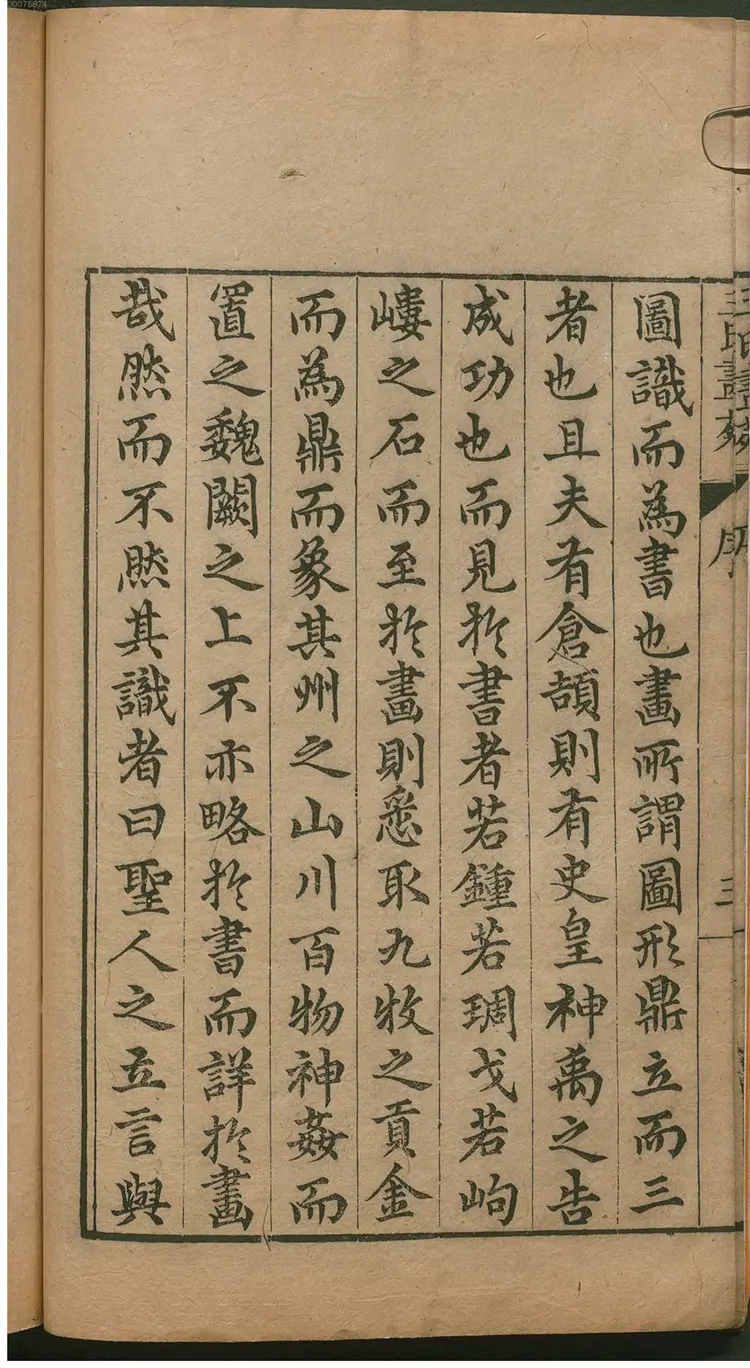 圖識而為書也畫所謂圖形鼎立而三
者也且夫有倉頡則有史皇神禹之告
成功也而見於書者若鍾若琱戈若岣
嶁之石而至於畫則悉取九牧之貢金
而為鼎而象其州之山川百物神姦而
置之魏闕之上不亦略於書而詳於畫
哉然而不然其識者曰聖人之立言與
王氏畫苑
序
三